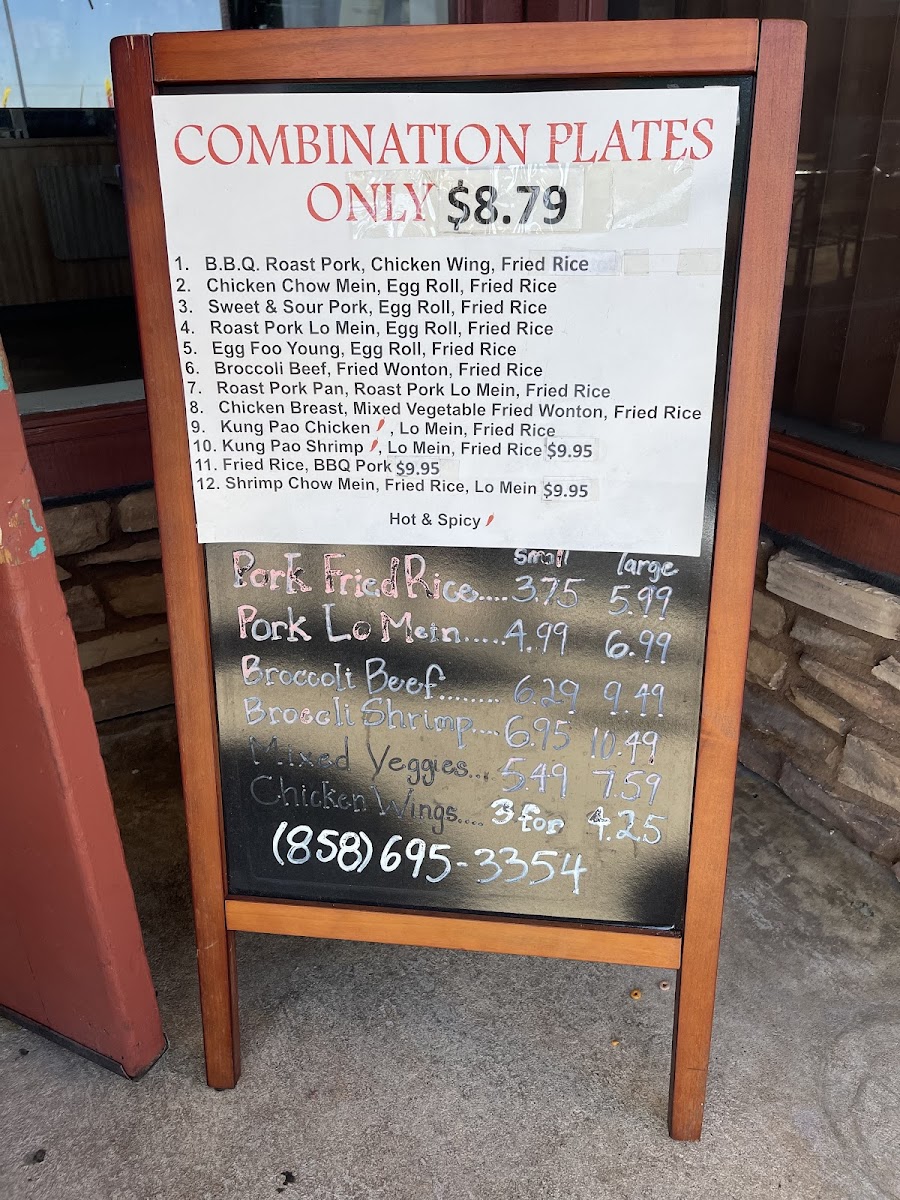 COMBINATION PLATES
ONLY $8.79
1. B.B.Q. Roast Pork, Chicken Wing, Fried Rice
2. Chicken Chow Mein, Egg Roll, Fried Rice
3. Sweet & Sour Pork, Egg Roll, Fried Rice
4. Roast Pork Lo Mein, Egg Roll, Fried Rice
5. Egg Foo Young, Egg Roll, Fried Rice
6. Broccoli Beef, Fried Wonton, Fried Rice
7. Roast Pork Pan, Roast Pork Lo Mein, Fried Rice
8. Chicken Breast, Mixed Vegetable Fried Wonton, Fried Rice
9. Kung Pao Chicken , Lo Mein, Fried Rice
10. Kung Pao Shrimp , Lo Mein, Fried Rice $9.95
11. Fried Rice, BBQ Pork $9.95
12. Shrimp Chow Mein, Fried Rice, Lo Mein $9.95
Hot & Spicy
small large
Pork Fried Rice.... 3.75 5.99
Pork Lo Mein..... 4.99 6.99
Broccoli Beef........ 6.29 9.49
Broccli Shrimp.... 6.95 10.49
Mixed Veggies... 5.49 7.59
Chicken Wings.... 3 for 4.25
(858) 695-3354